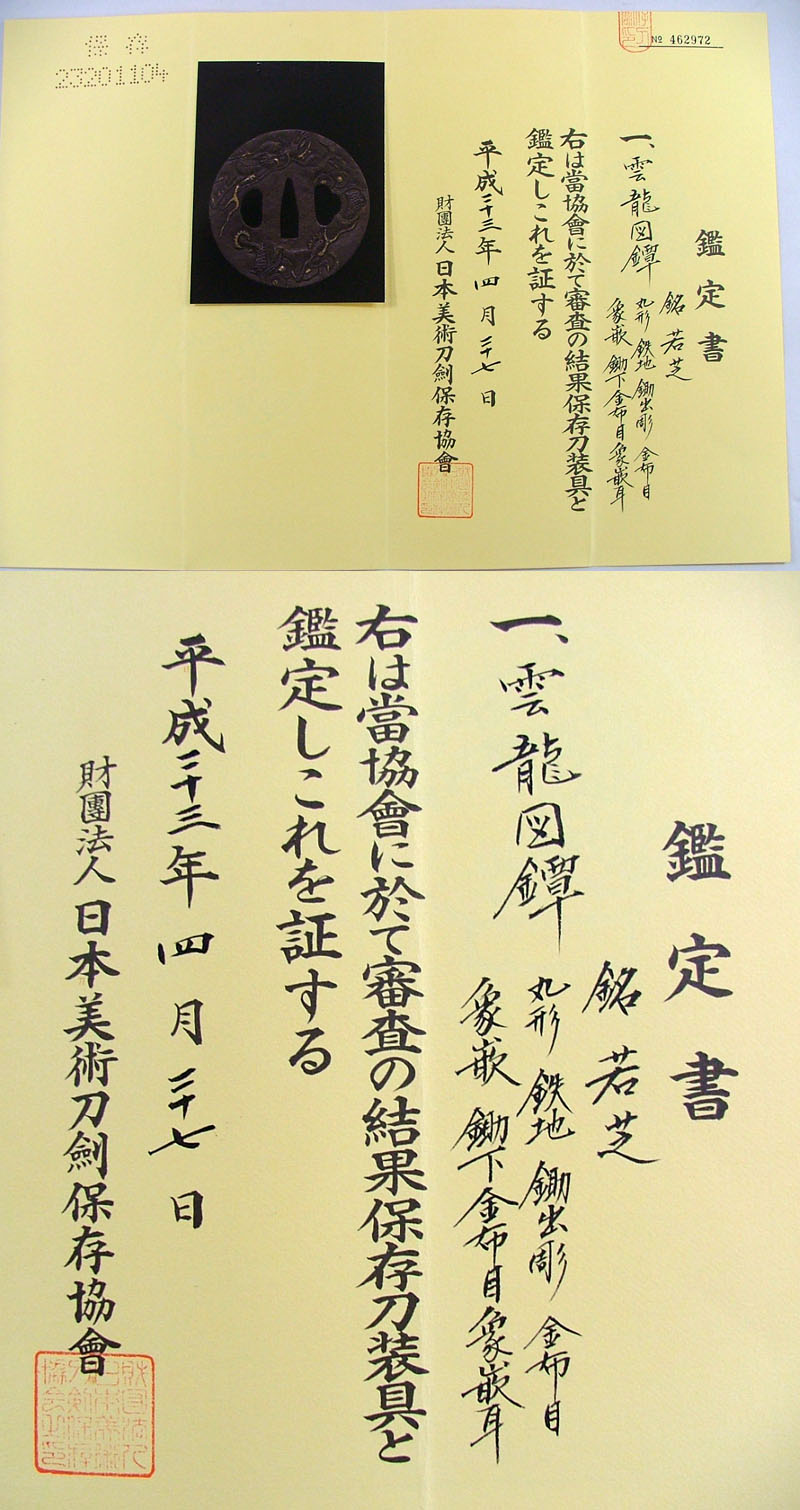 保存
23201104
№ 462972
鑑定書
一、雲龍図鐔
銘 若芝
丸形 鉄地 鋤出彫 金布目
象嵌 鋤下金布目象嵌耳
右は當協會に於て審査の結果保存刀装具と
鑑定しこれを証する
平成二十三年四月二十七日
財團法人日本美術刀劍保存協會
鑑定書
一、雲龍図鐔
銘 若芝
丸形 鉄地 鋤出彫 金布目
象嵌 鋤下金布目象嵌耳
右は當協會に於て審査の結果保存刀装具と
鑑定しこれを証する
平成二十三年四月二十七日
財團法人日本美術刀劍保存協會